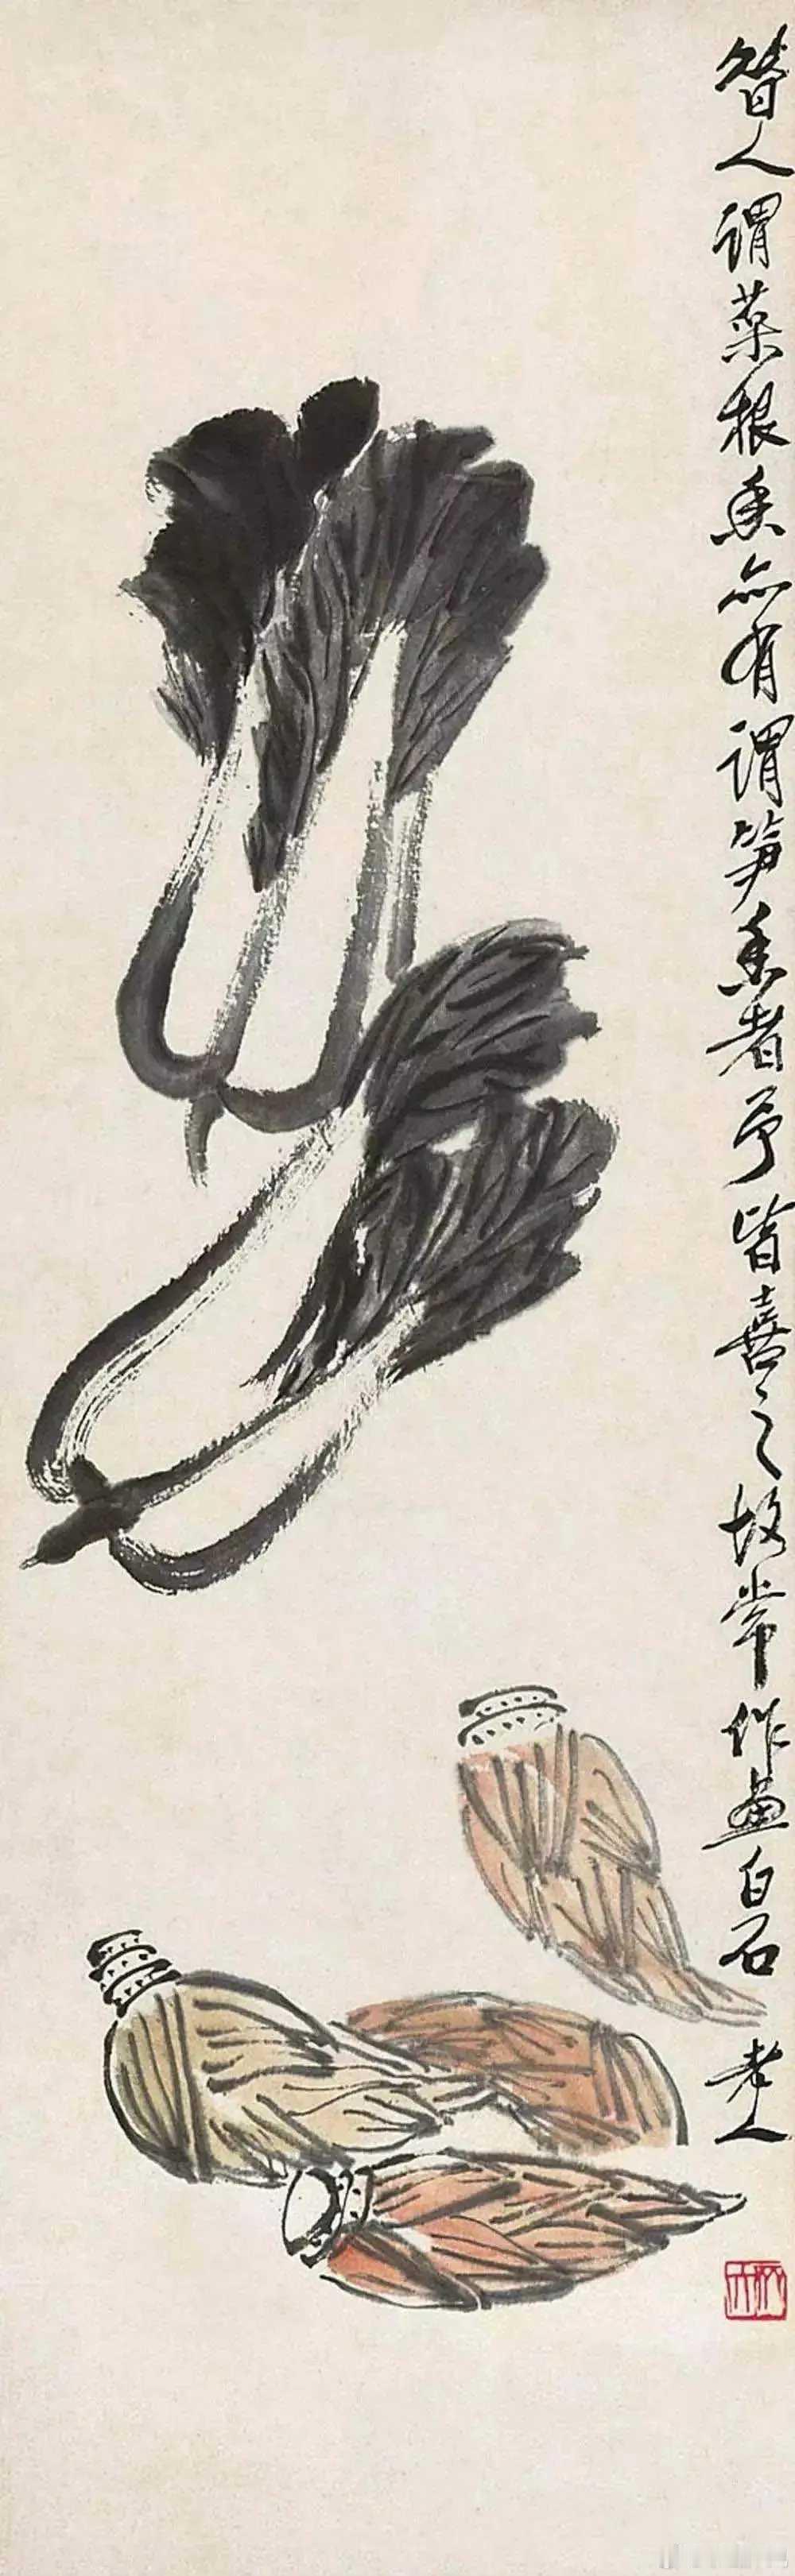 昔人謂菜根香亦有謂笋香者予皆喜之故常作畫白石老人